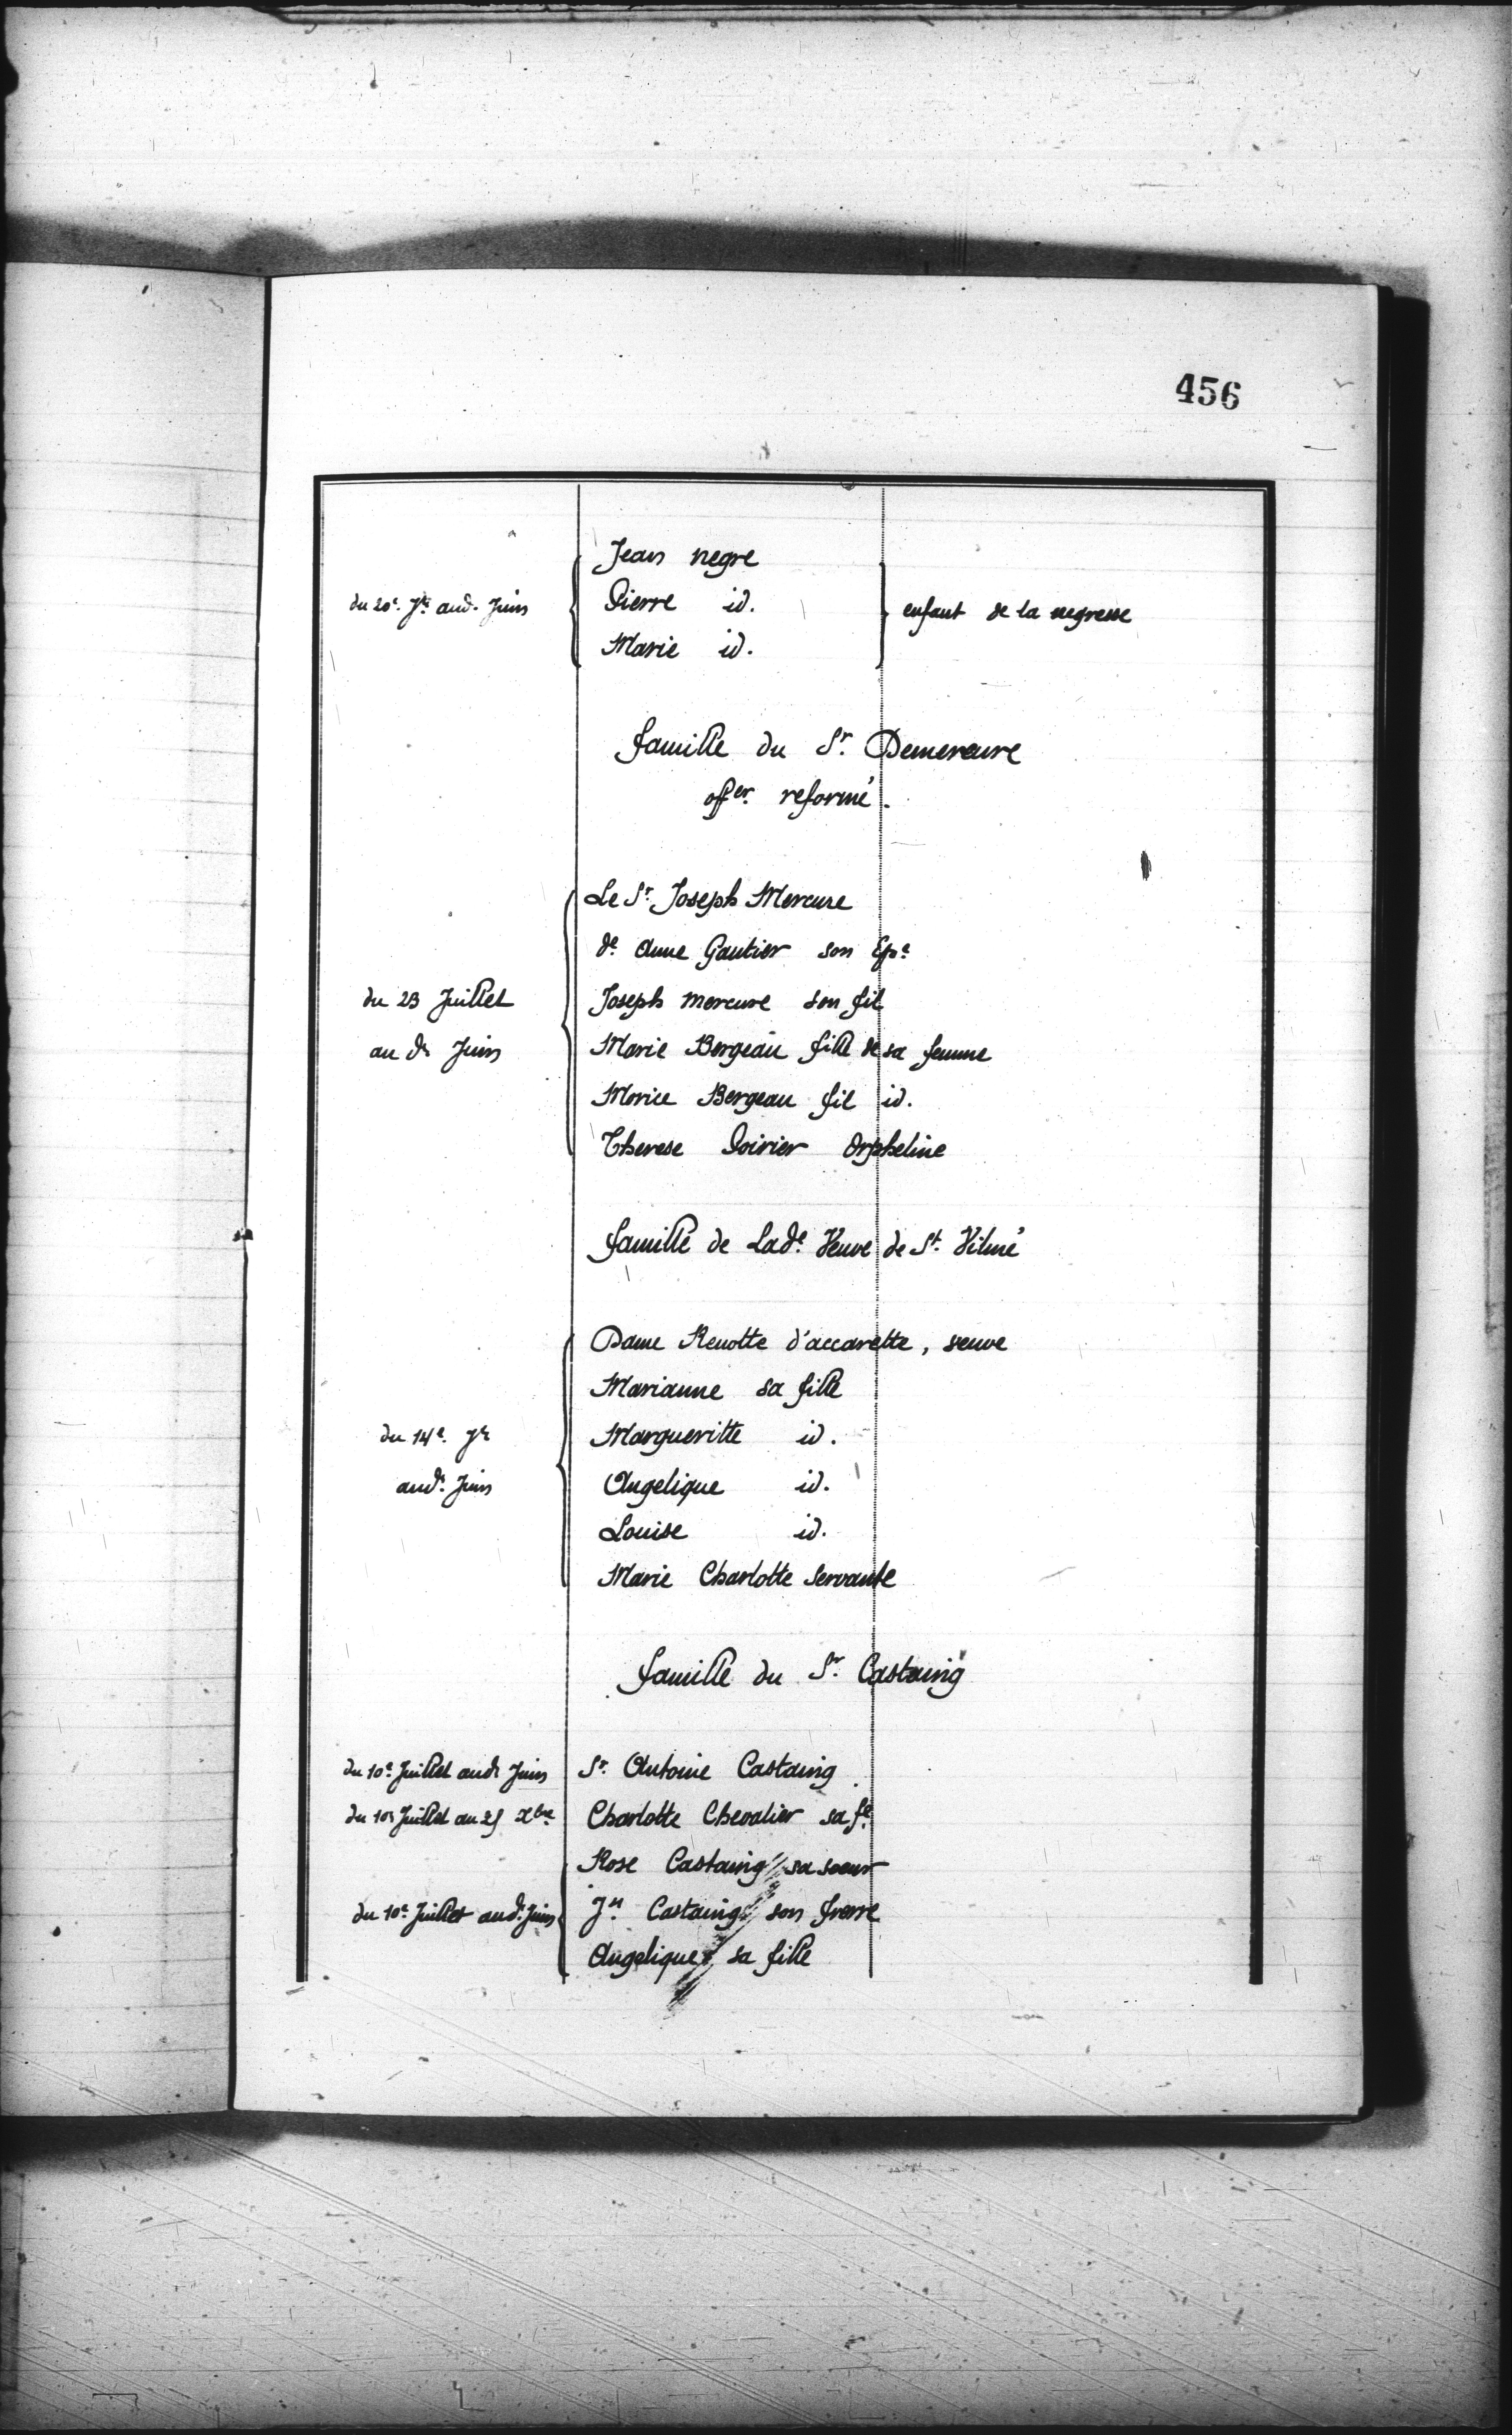 456
Jean negre
du 20e. Jr. aud. Juin
Pierre id.
enfant de la negresse
Marie id.
famille du Sr. Demercure
offer. reformé.
Le Sr. Joseph Mercure
de. Anne Gautier son Epse
du 23 Juillet
Joseph mercure son fil
au dr Juin
Marie Bergeau fille de sa femme
Morice Bergeau fil id.
Therese Poirier Orpheline
famille de Lade. Veuve de St. Vilmé
Dame Renotte d'accarette, veuve
Marianne sa fille
du 14e. Jr
Margueritte id.
aud. Juin
Angelique id.
Louise id.
Marie Charlotte Servante
famille du Sr. Castaing
du 10e Juillet audr Juin
Sr. Antoine Castaing
du 10e Juillet au 25 Xbre
Charlotte Chevalier sa fe.
Rose Castaing sa soeur
du 10e Juillet aud. Juin
Jn. Castaing son frerre
Angelique sa fille